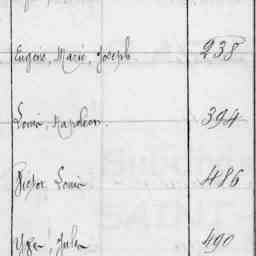 Eugène, Marie, Joseph 238
Louis, Napoléon. 394
Victor Louis 486
Jules 490